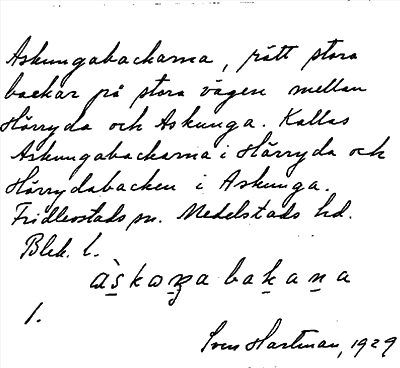 Askungabackarna, rätt stora
backar på stora vägen mellan
Härryda och Askunga. Kallas
Askungabackarna i Härryda och
Härrydabacken i Askunga.
Fridlevstads sn. Medelstads hd.
Blek. l.
àskoŋa bakana
1.
Sven Hartman, 1929